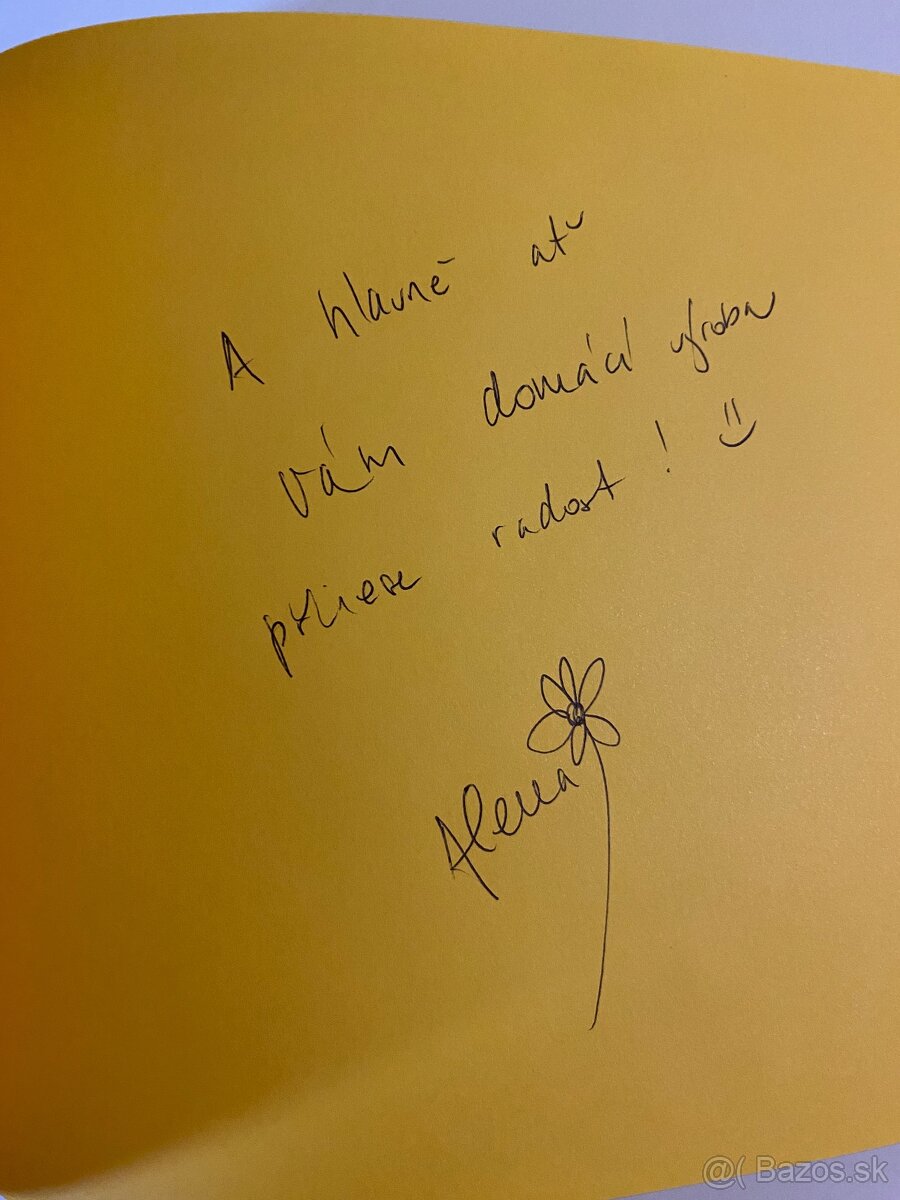 A hlavně ať
vám domácí výroba
přinese radost! :)
Alena
@( Bazos.sk